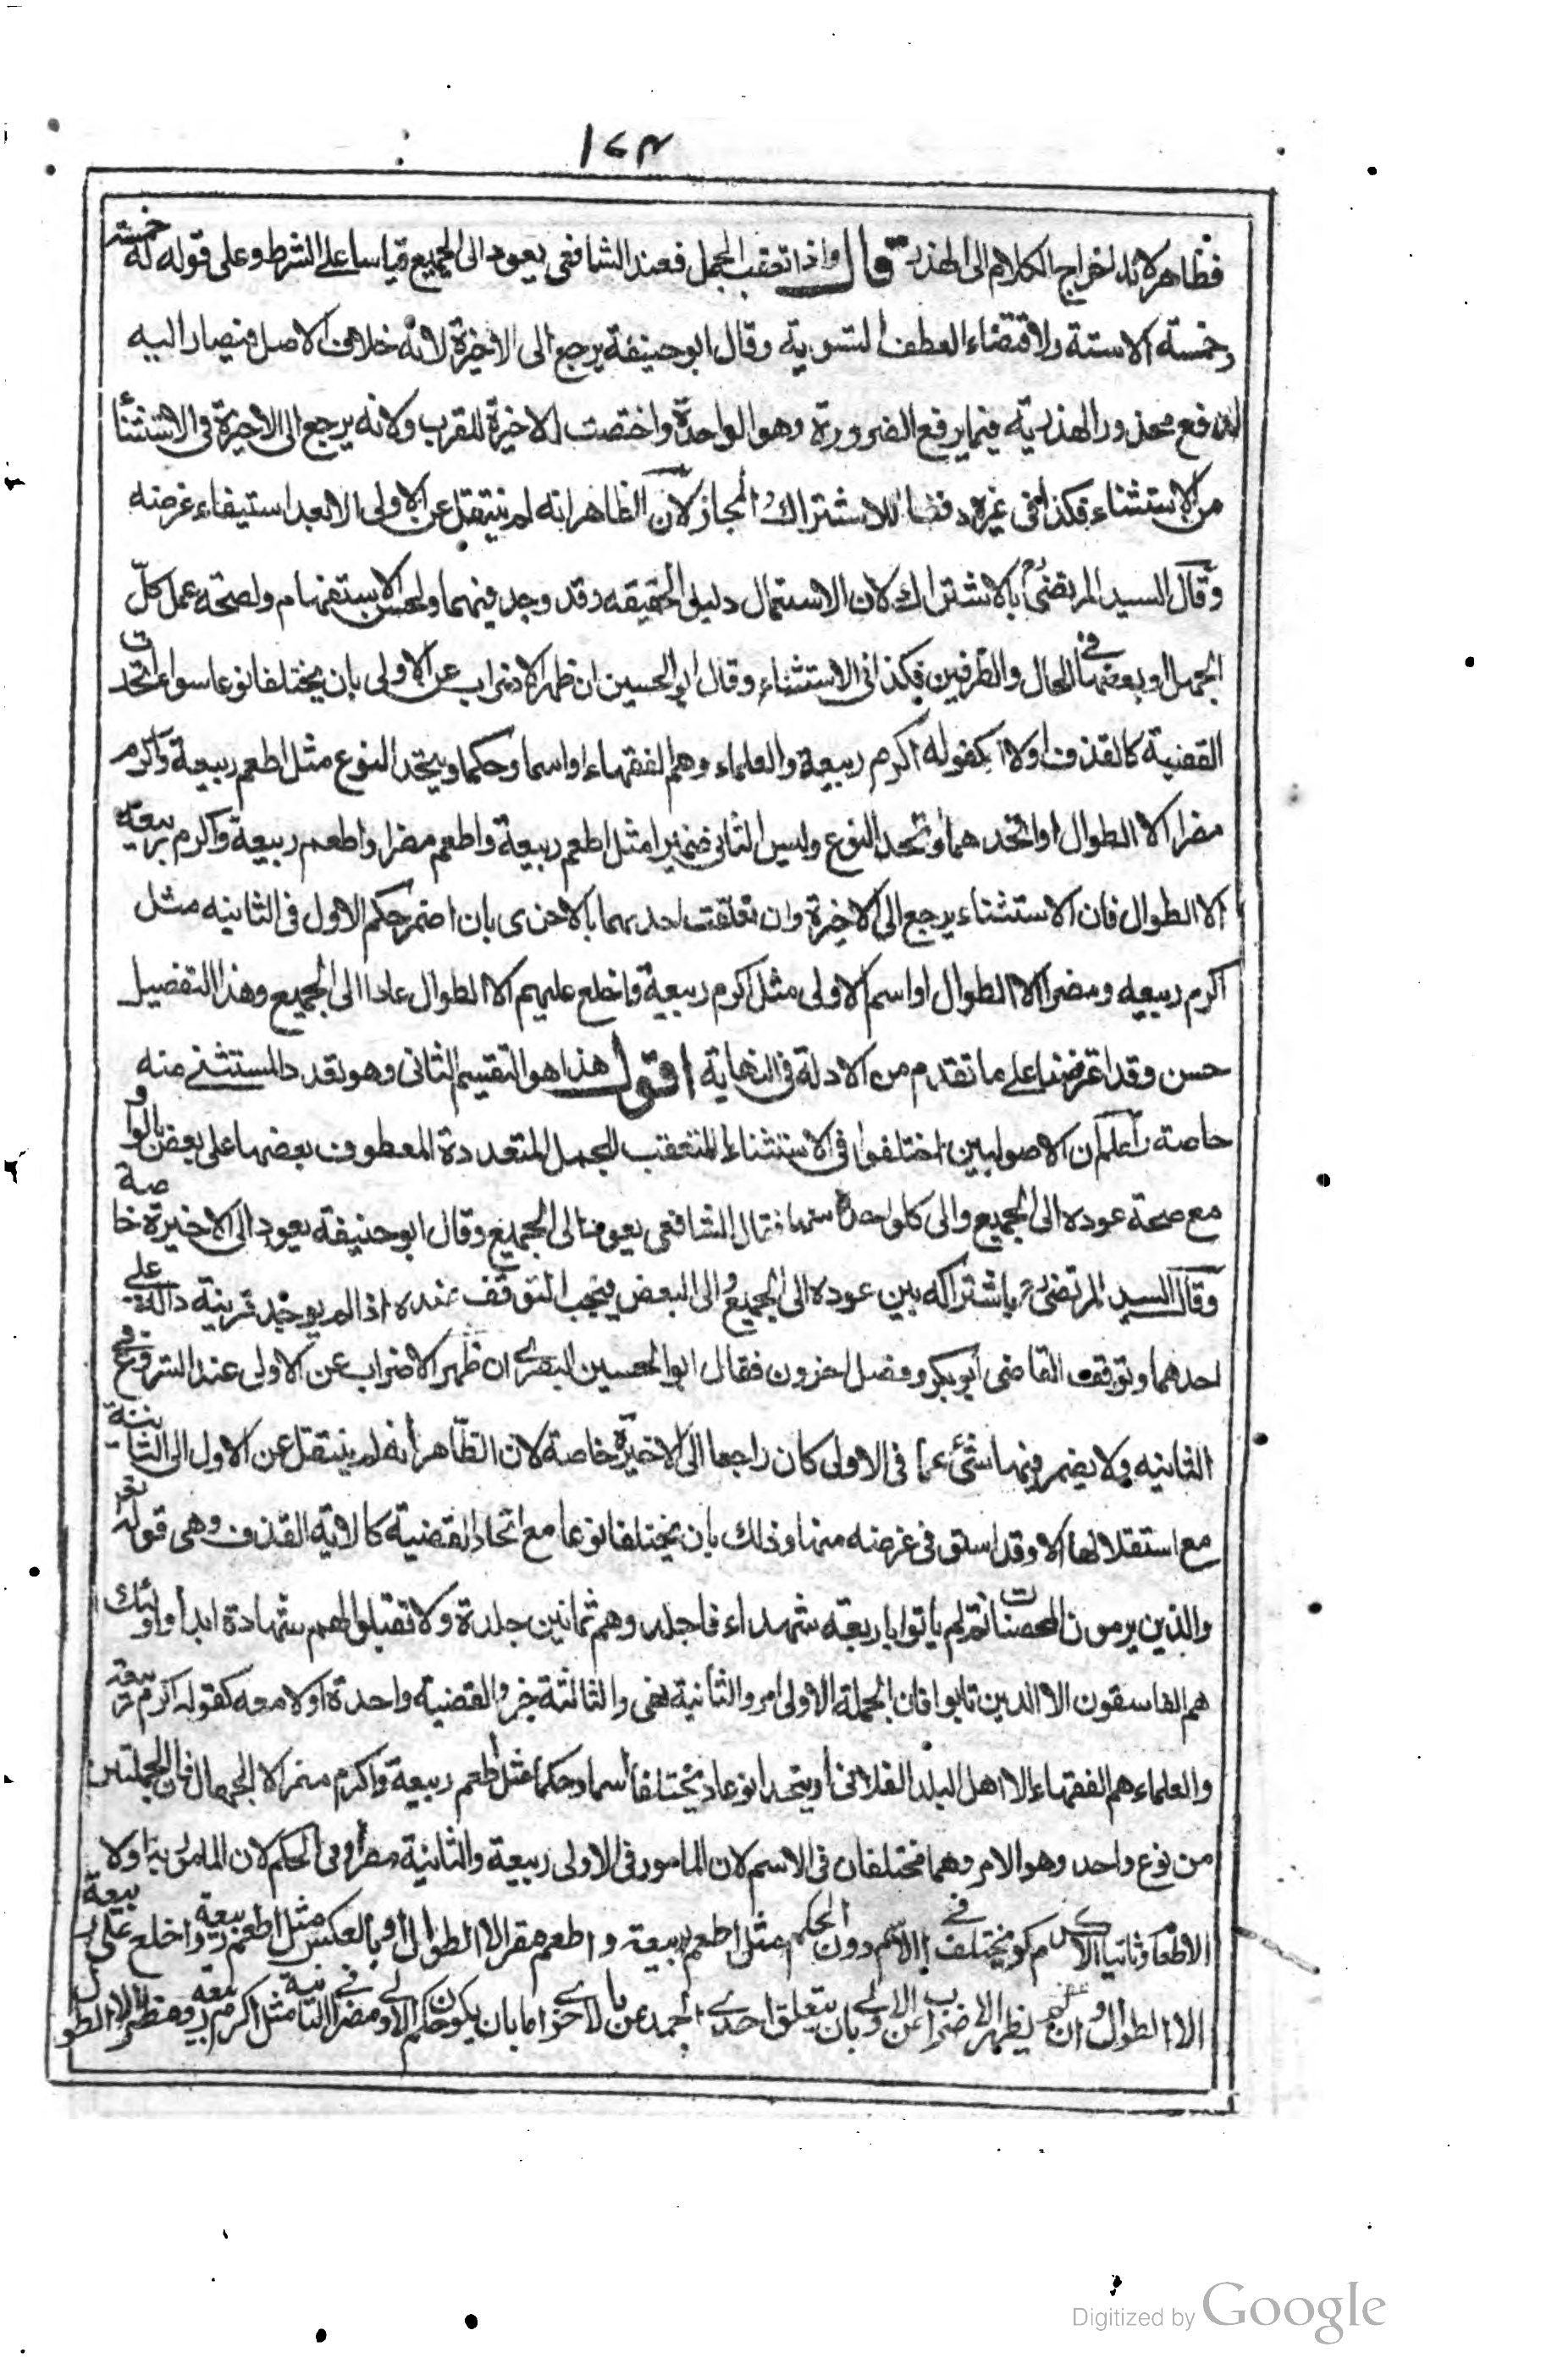 ١٧٣
فظاهر لانه لخراج الكلام الى الهذر قال واذا تعقب الجمل فعند الشافعى يعود الى الجميع قياسا على الشرط وعلى قوله له خمسة
وخمسة الا ستة ولاقتضاء العطف التسوية وقال ابو حنيفة يرجع الى الاخيرة لانه خلاف الاصل فيصار اليه
لدفع محذور الهذرية فيما يرفع الضرورة وهو الواحدة واختصت الاخيرة للقرب ولانه يرجع الى الاخيرة فى الاستثنأ
من الاستثناء فكذا فى غيره دفعا للاشتراك والمجاز لان الظاهر انه لم ينتقل عن الاولى الا بعد استيفاء غرضه
وقال السيد المرتضى بالاشتراك لان الاستعمال دليل الحقيقه وقد وجد فيهما ولحسن الاستفهام ولصحة عمل كل
الجمل او بعضها فى الحال والظرفين فكذا فى الاستثناء وقال ابو الحسين ان ظهر الاضراب عن الاولى بان يختلفا نوعا سواء اتحدت
القضية كالقذف او لا كقوله اكرم ربيعة والعلماء وهم الفقهاء او اسما وحكما ويتحد النوع مثل اطعم ربيعة واكرم
مضر الا الطوال او اتحد هما وتحد النوع وليس الثانى ضميرا مثل اطعم ربيعة واطعم مضر او اطعم ربيعة واكرم ربيعة
الا الطوال فان الاستثناء يرجع الى الاخيرة وان تعلقت احديهما بالاخرى بان اضمر حكم الاول فى الثانيه مثل
اكرم ربيعه ومضر الا الطوال او اسم الاولى مثل اكرم ربيعة واخلع عليهم الا الطوال عادا الى الجميع وهذا التفصيل
حسن وقد اعترضنا على ما تقدم من الادلة فى النهاية اقول هذا هو التقسيم الثانى وهو تعدد المستثنى منه
خاصة واعلم ان الاصوليين اختلفوا فى الاستثناء المتعقب للجمل المتعددة المعطوف بعضها على بعض بالواو
مع صحة عوده الى الجميع والى كل واحدة منها فقال الشافعى يعود الى الجميع وقال ابو حنيفة يعود الى الاخيرة خاصة
وقال السيد المرتضى باشتراكه بين عوده الى الجميع والى البعض فيجب التوقف عنده اذا لم يوجد قرينة دالة على
احدهما وتوقف القاضى ابو بكر وفصل اخرون فقال ابو الحسين البصرى ان ظهر الاضراب عن الاولى عند الشروع فى
الثانيه ولا يضمر فيها شئ عما فى الاولى كان راجعا الى الاخيرة خاصة لان الظاهر انه لم ينتقل عن الاول الى الثانية
مع استقلالها الا وقد استوفى غرضه منها وذلك بان يختلفا نوعا مع اتحاد القضية كالاية القذف وهى قوله تعر
والذين يرمون المحصنات ثم لم ياتوا باربعة شهداء فاجلدوهم ثمانين جلدة ولا تقبلوا لهم شهادة ابدا واولئك
هم الفاسقون الا الذين تابوا فان الجملة الاولى امر والثانية نهى والثالثة خبر والقضية واحدة او لا معه كقوله اكرم ربيعة
والعلماء هم الفقهاء الا اهل البلد الفلانى او يتحدا نوعا ويختلفا اسما وحكما مثل اطعم ربيعة واكرم مضر الا الجهال فان الجملتين
من نوع واحد وهو الامر وهما مختلفان فى الاسم لان المامور فى الاولى ربيعة والثانية مضر وفى الحكم لان المامور به اولا
الاطعام وثانيا الاكرام او يختلف فى الاسم دون الحكم مثل اطعم ربيعة واطعم مضر الا الطوال او بالعكس مثل اطعم ربيعة واخلع على ربيعة
الا الطوال وان لم يظهر الاضراب عن الاولى وبان يتعلق احدى الجملتين بالاخرى اما بان يكون حكم الاولى فى الثانية مثل اكرم ربيعه ومضر الا الطوال
Digitized by Google